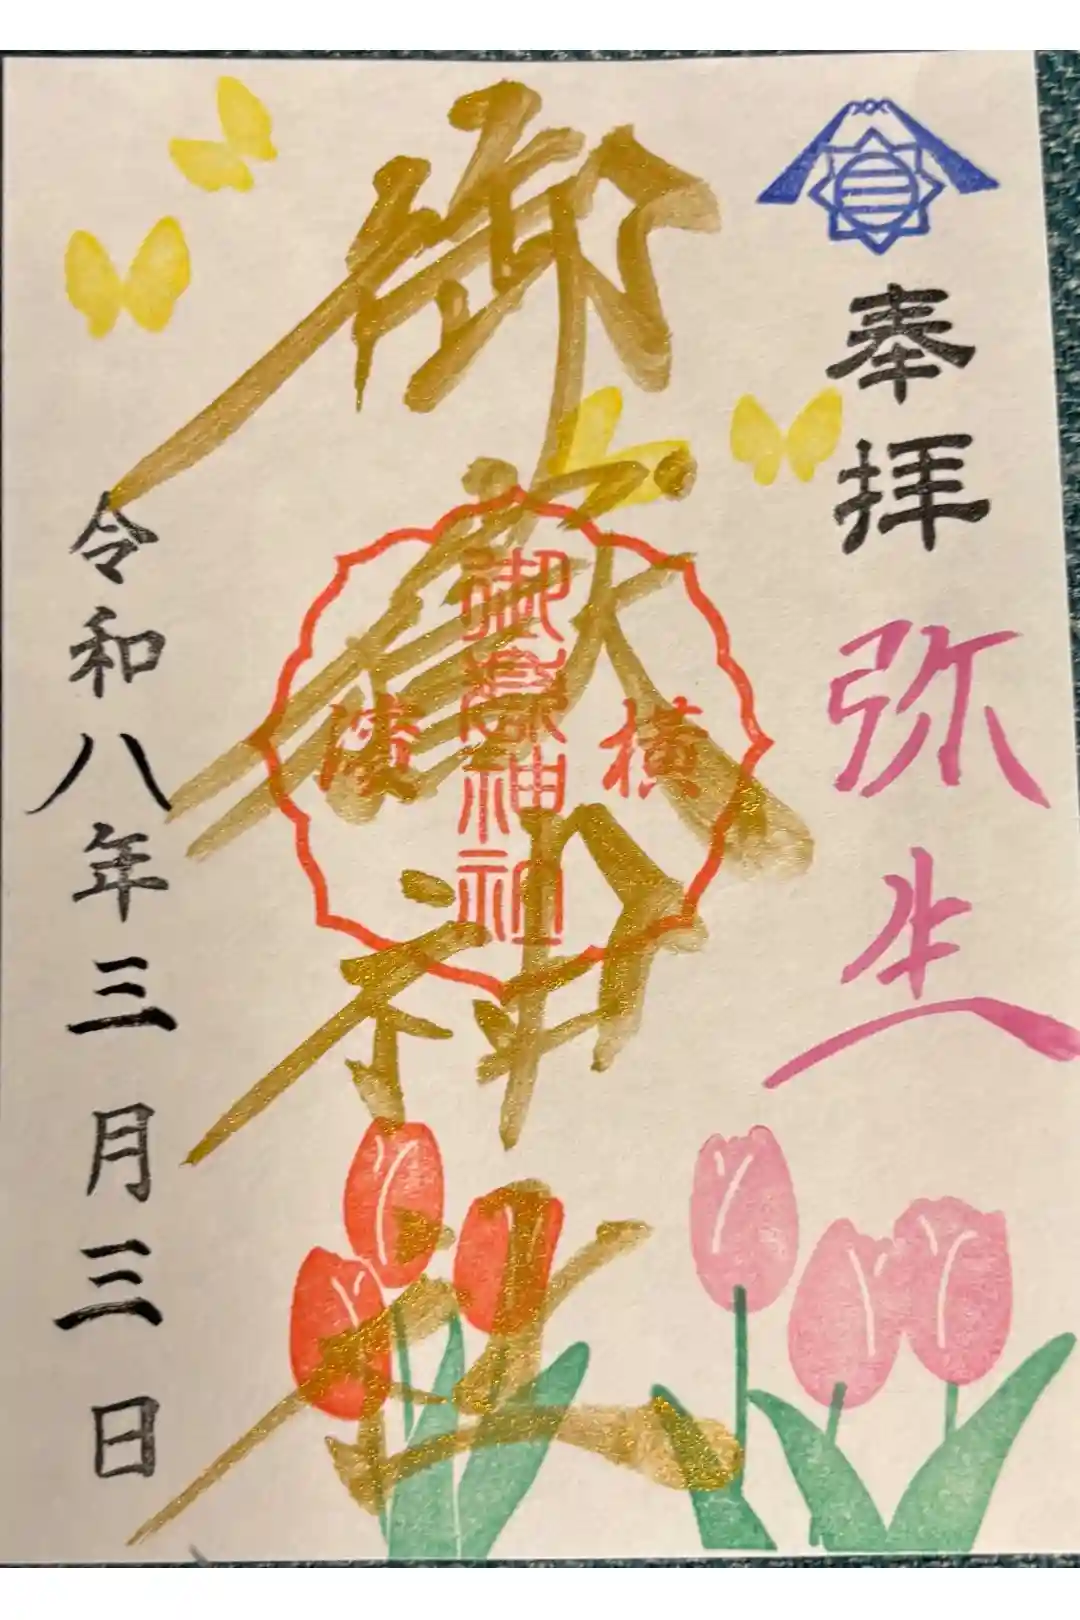 奉拝
弥生
御嶽神社
横濱
御嶽神社
令和八年三月三日